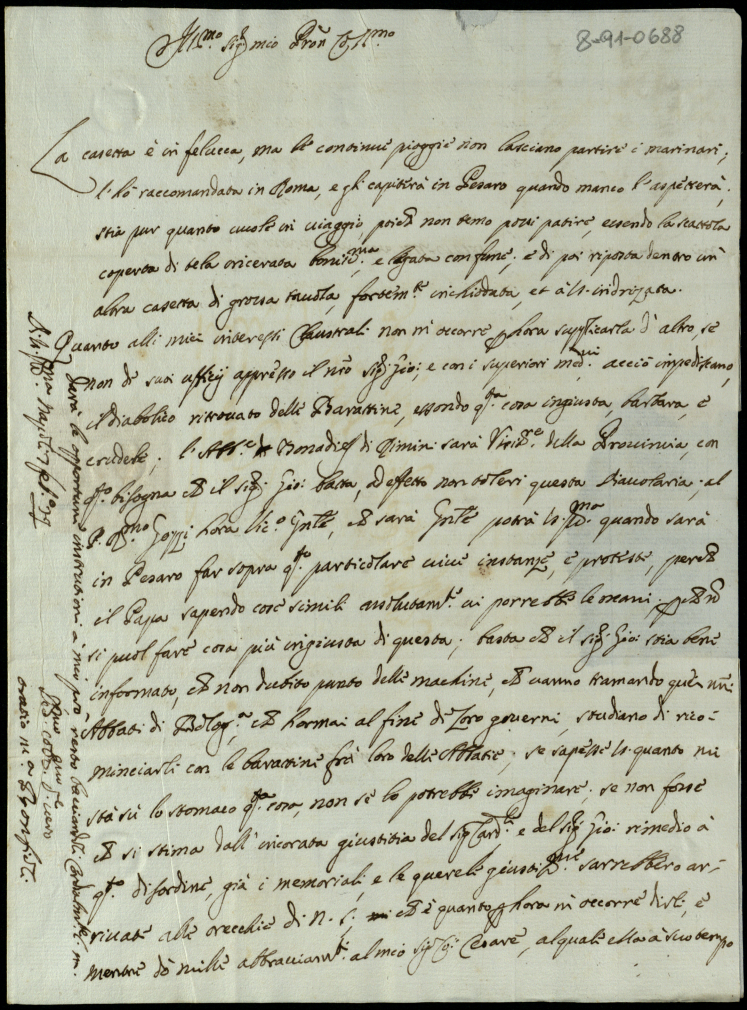 8-91-0688
Ill.mo Sig.r mio Pron Col.mo
La casetta è in felucca, ma le continue pioggie non lasciano partire i marinari;
l'hò raccomandata in Roma, e gli capiterà in Pesaro quando manco l'aspetterà;
stia pur quanto vuole in viaggio, poiche non temo possi patire, essendo la scattola
coperta di tela incerata bonis.ma e legata con fune, e di poi riposta dentro un
altra casetta di grossa tavola, fortem.te inchiodata, et à V.S. indrizzata.
Quanto alli miei interessi Claustrali non m'occorre p hora supplicarla d'altro, se
non de suoi ufficij appresso il nro Sig.r Gio:, e con i superiori med.mi acciò impedischino,
il diabolico ritrovato delle Barattine, essendo q.ta cosa ingiusta, barbara, e
crudele; l'Abb.e Bonadies di Rimini sarà Visit.re della Provincia, con
q.to bisogna che il Sig.r Gio: batta, ad effetto non toleri questa diavolaria; al
P. R.mo Gozzi hora Vic.o Gnle, che sarà Gnle potrà V.S. Ill.ma quando sarà
in Pesaro far sopra q.to particolare vive instanze, e proteste, perche
il Papa sapendo cose simili assolutam.te vi porrebbe le mani. p che nō
si puol fare cosa più ingiusta di questa; basta che il Sig.r Gio: stia bene
informato, che non dubito punto delle machine, che vanno tramando questi
Abbati di Bolog.a che hormai al fine di loro governi, studiano di rico=
minciarli con le barattine frà loro delle Abbatie; se sapesse V.S. quanto mi
stà sù lo stomaco q.ta cosa, non se lo potrebbe imaginare; se non fosse
che si stima dall'incorata giustitia del Sig. Card.le e del Sig.r Gio: rimedio à
q.to disordine, già i memoriali, e le querele giustis.me sarrebbero ar=
rivate alle orecchie di N.S.; che è quanto p hora m'occorre dirle, e
mentre dò mille abbracciam.ti al mio Sig.r Cesare, al quale ella à suo tempo
darà le opportune instrutioni à miei prò resto baciandoli cordialmte. m.
D.V.S. Ill.ma Napoli 7 feb.o
Oratio M.a Bonfioli